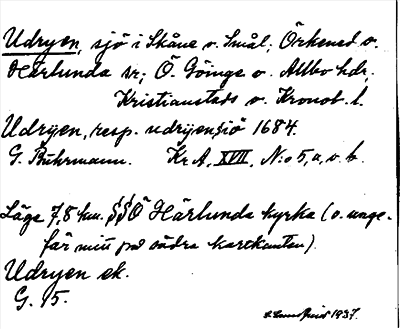 Udryen, sjö i Skåne o. Smål; Örkened o.
Härlunda sr; Ö. Göinge o. Allbo hdr,
Kristianstads o. Kronob. l.
Udryen, resp. udryensiö 1684.
G. Buhrmann. KrA, XVII, N:o 5, a, o. b.
Läge 7,8 km. SSÖ Härlunda kyrka (o. unge-
fär mitt på södra kartkanten).
Udryen ek.
G. 15.
1937.